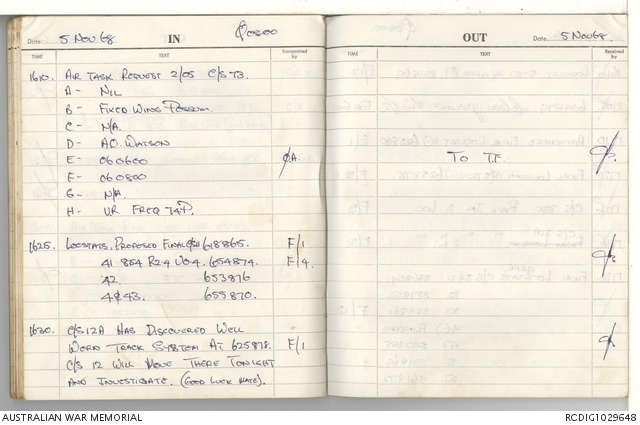 Date 5 Nov 68 IN
OUT Date 5 Nov 68.
TIME TEXT Transmitted by
TIME TEXT Received by
1610. AIR TASK REQUEST 2/05 C/S 73.
A - NIL
B - FIXED WING POSSUM.
C - N/A.
D - AO. WATSON
E - 060600 TO T.F.
F - 060800
G - N/A
H - UR FREQ 74
1625. LOCSTATS. PROPOSED FINAL 648865. F/1
41 654874. F/4.
42. 653876
4 & 43. 655870.
1630. C/S 12A HAS DISCOVERED WELL
WORN TRACK SYSTEM AT 625878. F/1
C/S 12 WILL MOVE THERE TONIGHT
AND INVESTIGATE. (GOOD LUCK MATE).
AUSTRALIAN WAR MEMORIAL RCDIG1029648